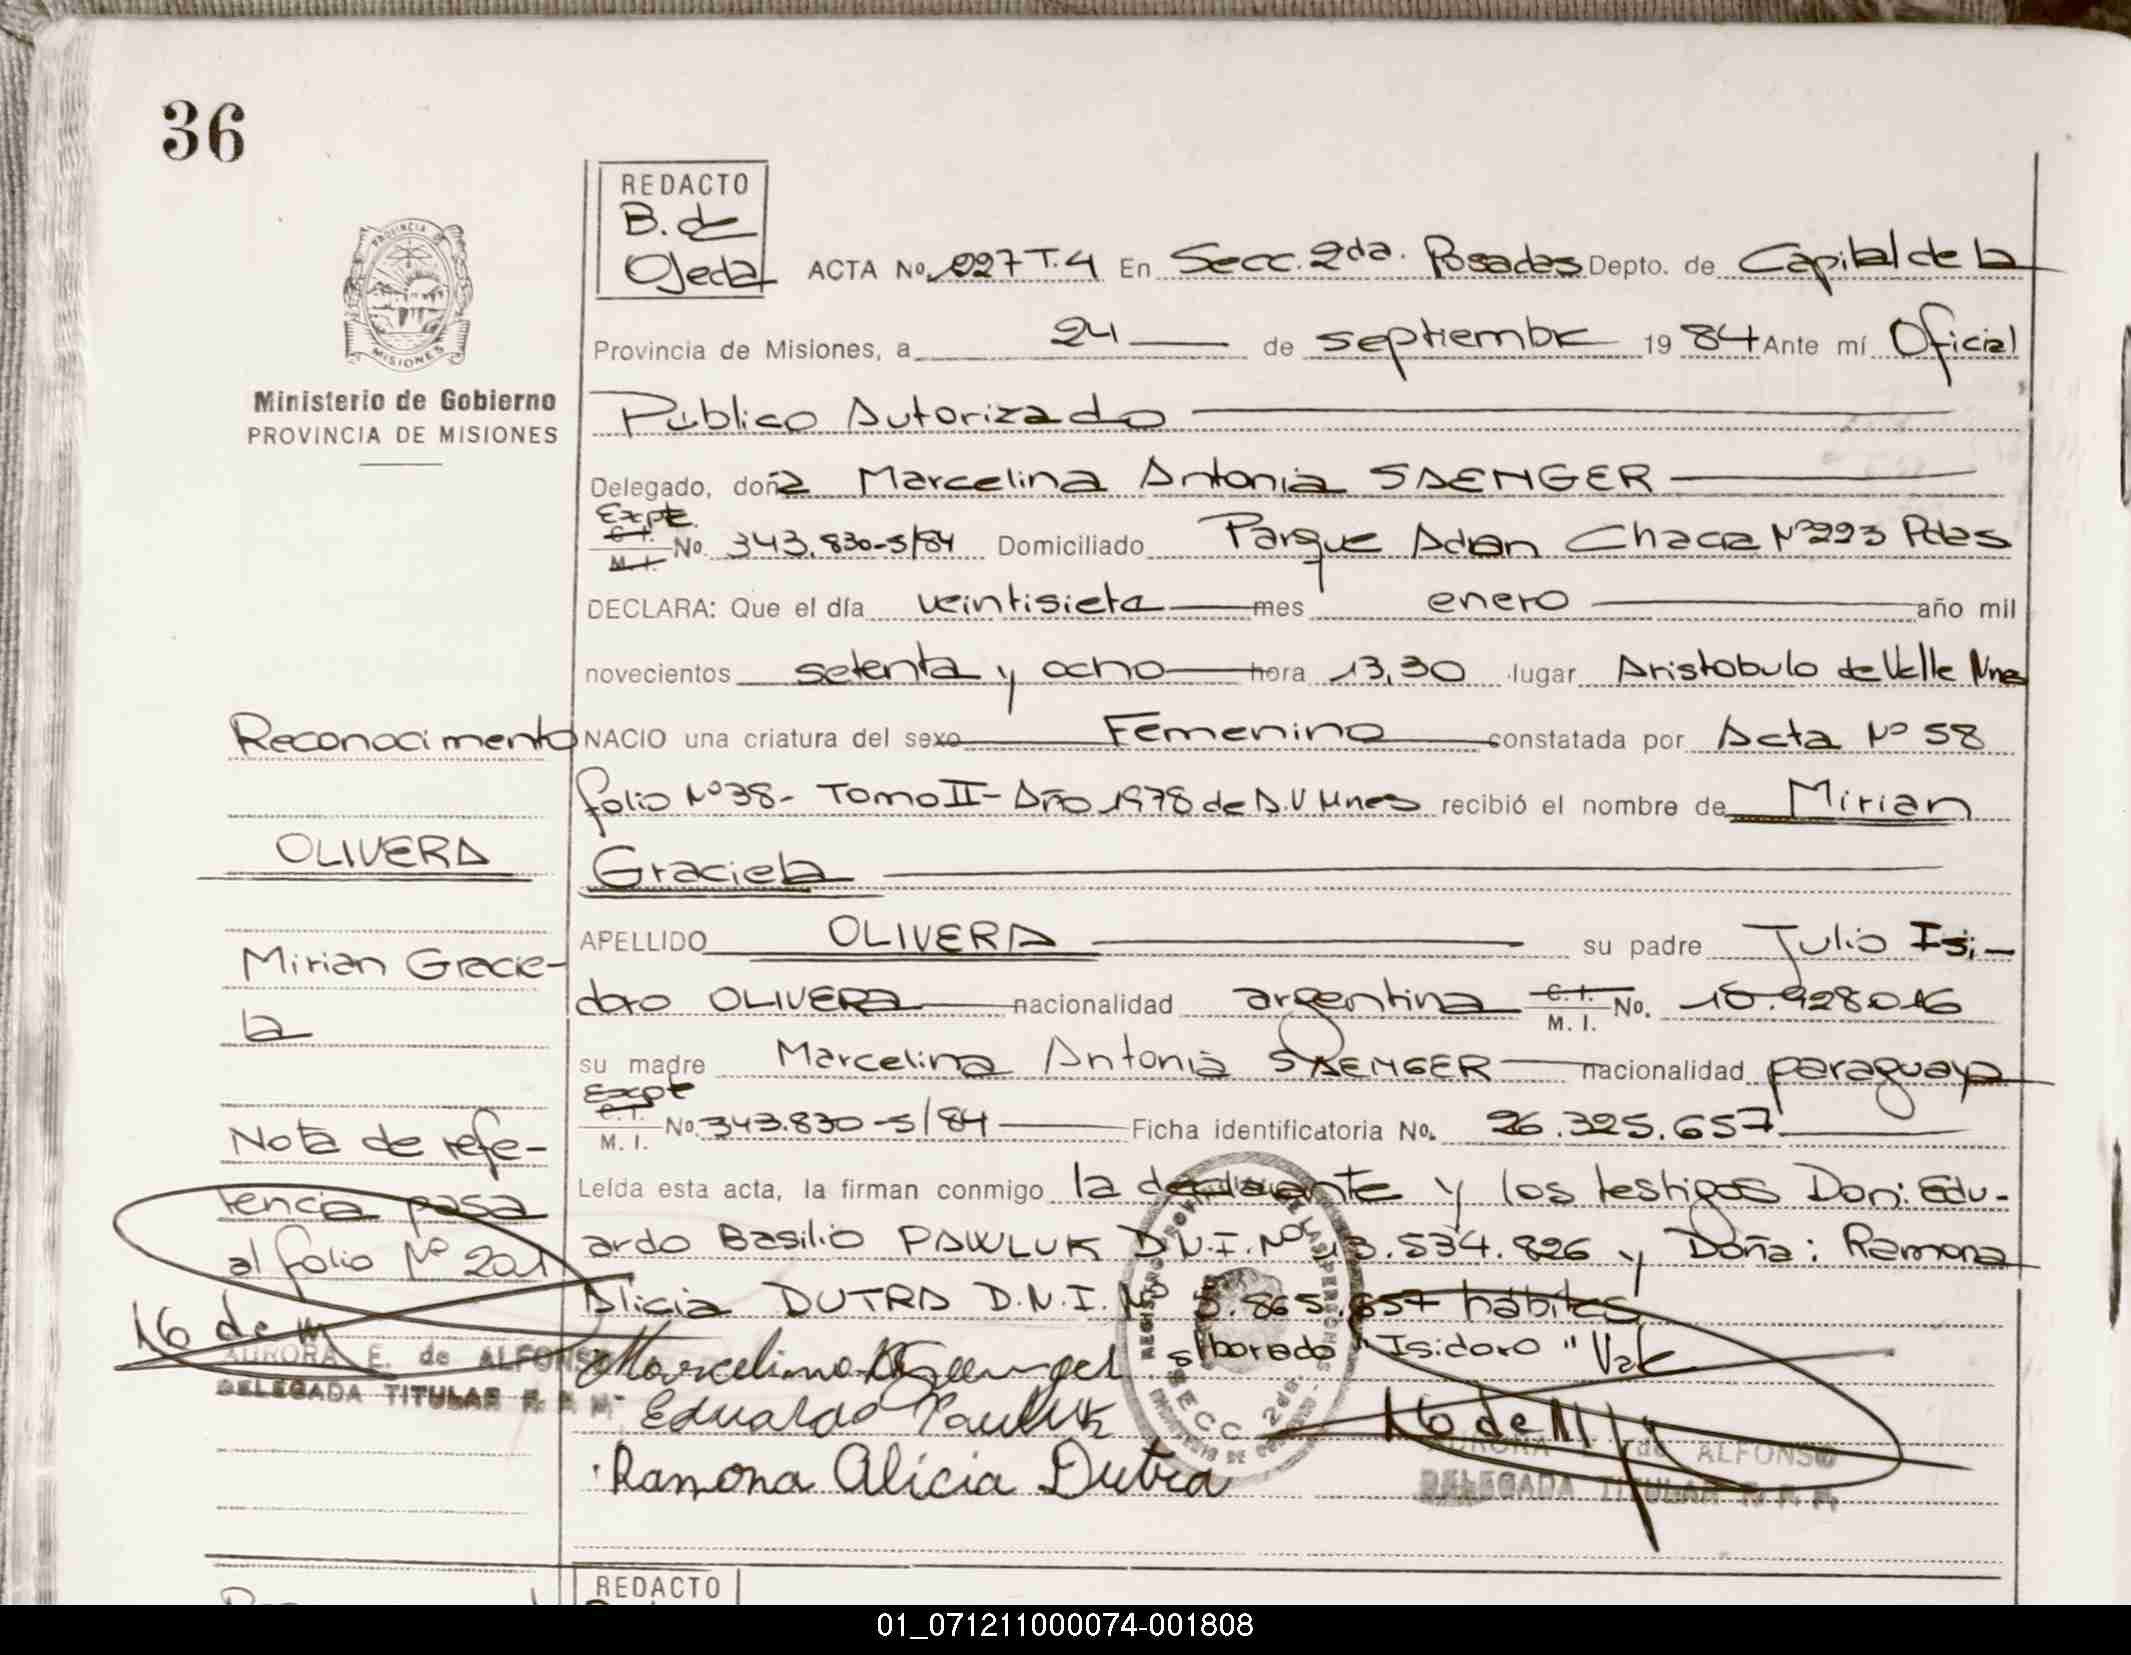 36
REDACTO
B. de
Ojeda
ACTA No. 227 T.4 En Secc. 2da. Posadas Depto. de Capital de la
Provincia de Misiones, a 24 de septiembre 1984 Ante mí Oficial
PROVINCIA DE
MISIONES
Ministerio de Gobierno
PROVINCIA DE MISIONES
Público Autorizado
Delegado, doña Marcelina Antonia SAENGER
Expte.
C. I.
M. I. No. 343.830-S/84 Domiciliado Parque Adam Chacra Nº 223 Pdas
DECLARA: Que el día veintisiete mes enero año mil
novecientos setenta y ocho hora 13,30 lugar Aristobulo del Valle Mnes
Reconocimento
NACIO una criatura del sexo Femenino constatada por Acta Nº 58
folio Nº 38- Tomo II- Año 1978 de A.V Mnes recibió el nombre de Mirian
OLIVERA
Graciela
APELLIDO OLIVERA su padre Julio Isi-
Mirian Gracie-
la
doro OLIVERA nacionalidad argentina C. I. M. I. No. 10.928016
su madre Marcelina Antonia SAENGER nacionalidad paraguaya
Expte
C. I.
M. I. No. 343.830-S/84 Ficha identificatoria No. 26.325.657
Nota de refe-
rencia pasa
al folio Nº 201
Leída esta acta, la firman conmigo la declarante y los testigos Don: Edu-
ardo Basilio PAWLUK D.N.I. Nº 13.534.826 y Doña: Ramona
Alicia DUTRA D.N.I. Nº 5.865.657 habiles
"Isidoro" Vale
16 de
AURORA E. de ALFONSO
DELEGADA TITULAR R. P. P.
Marcelina A Saenger
Eduardo Pawluk
Ramona Alicia Dutra
SECC 2da.
16 de
AURORA E. de ALFONSO
DELEGADA TITULAR R. P. P.
REDACTO
01_071211000074-001808